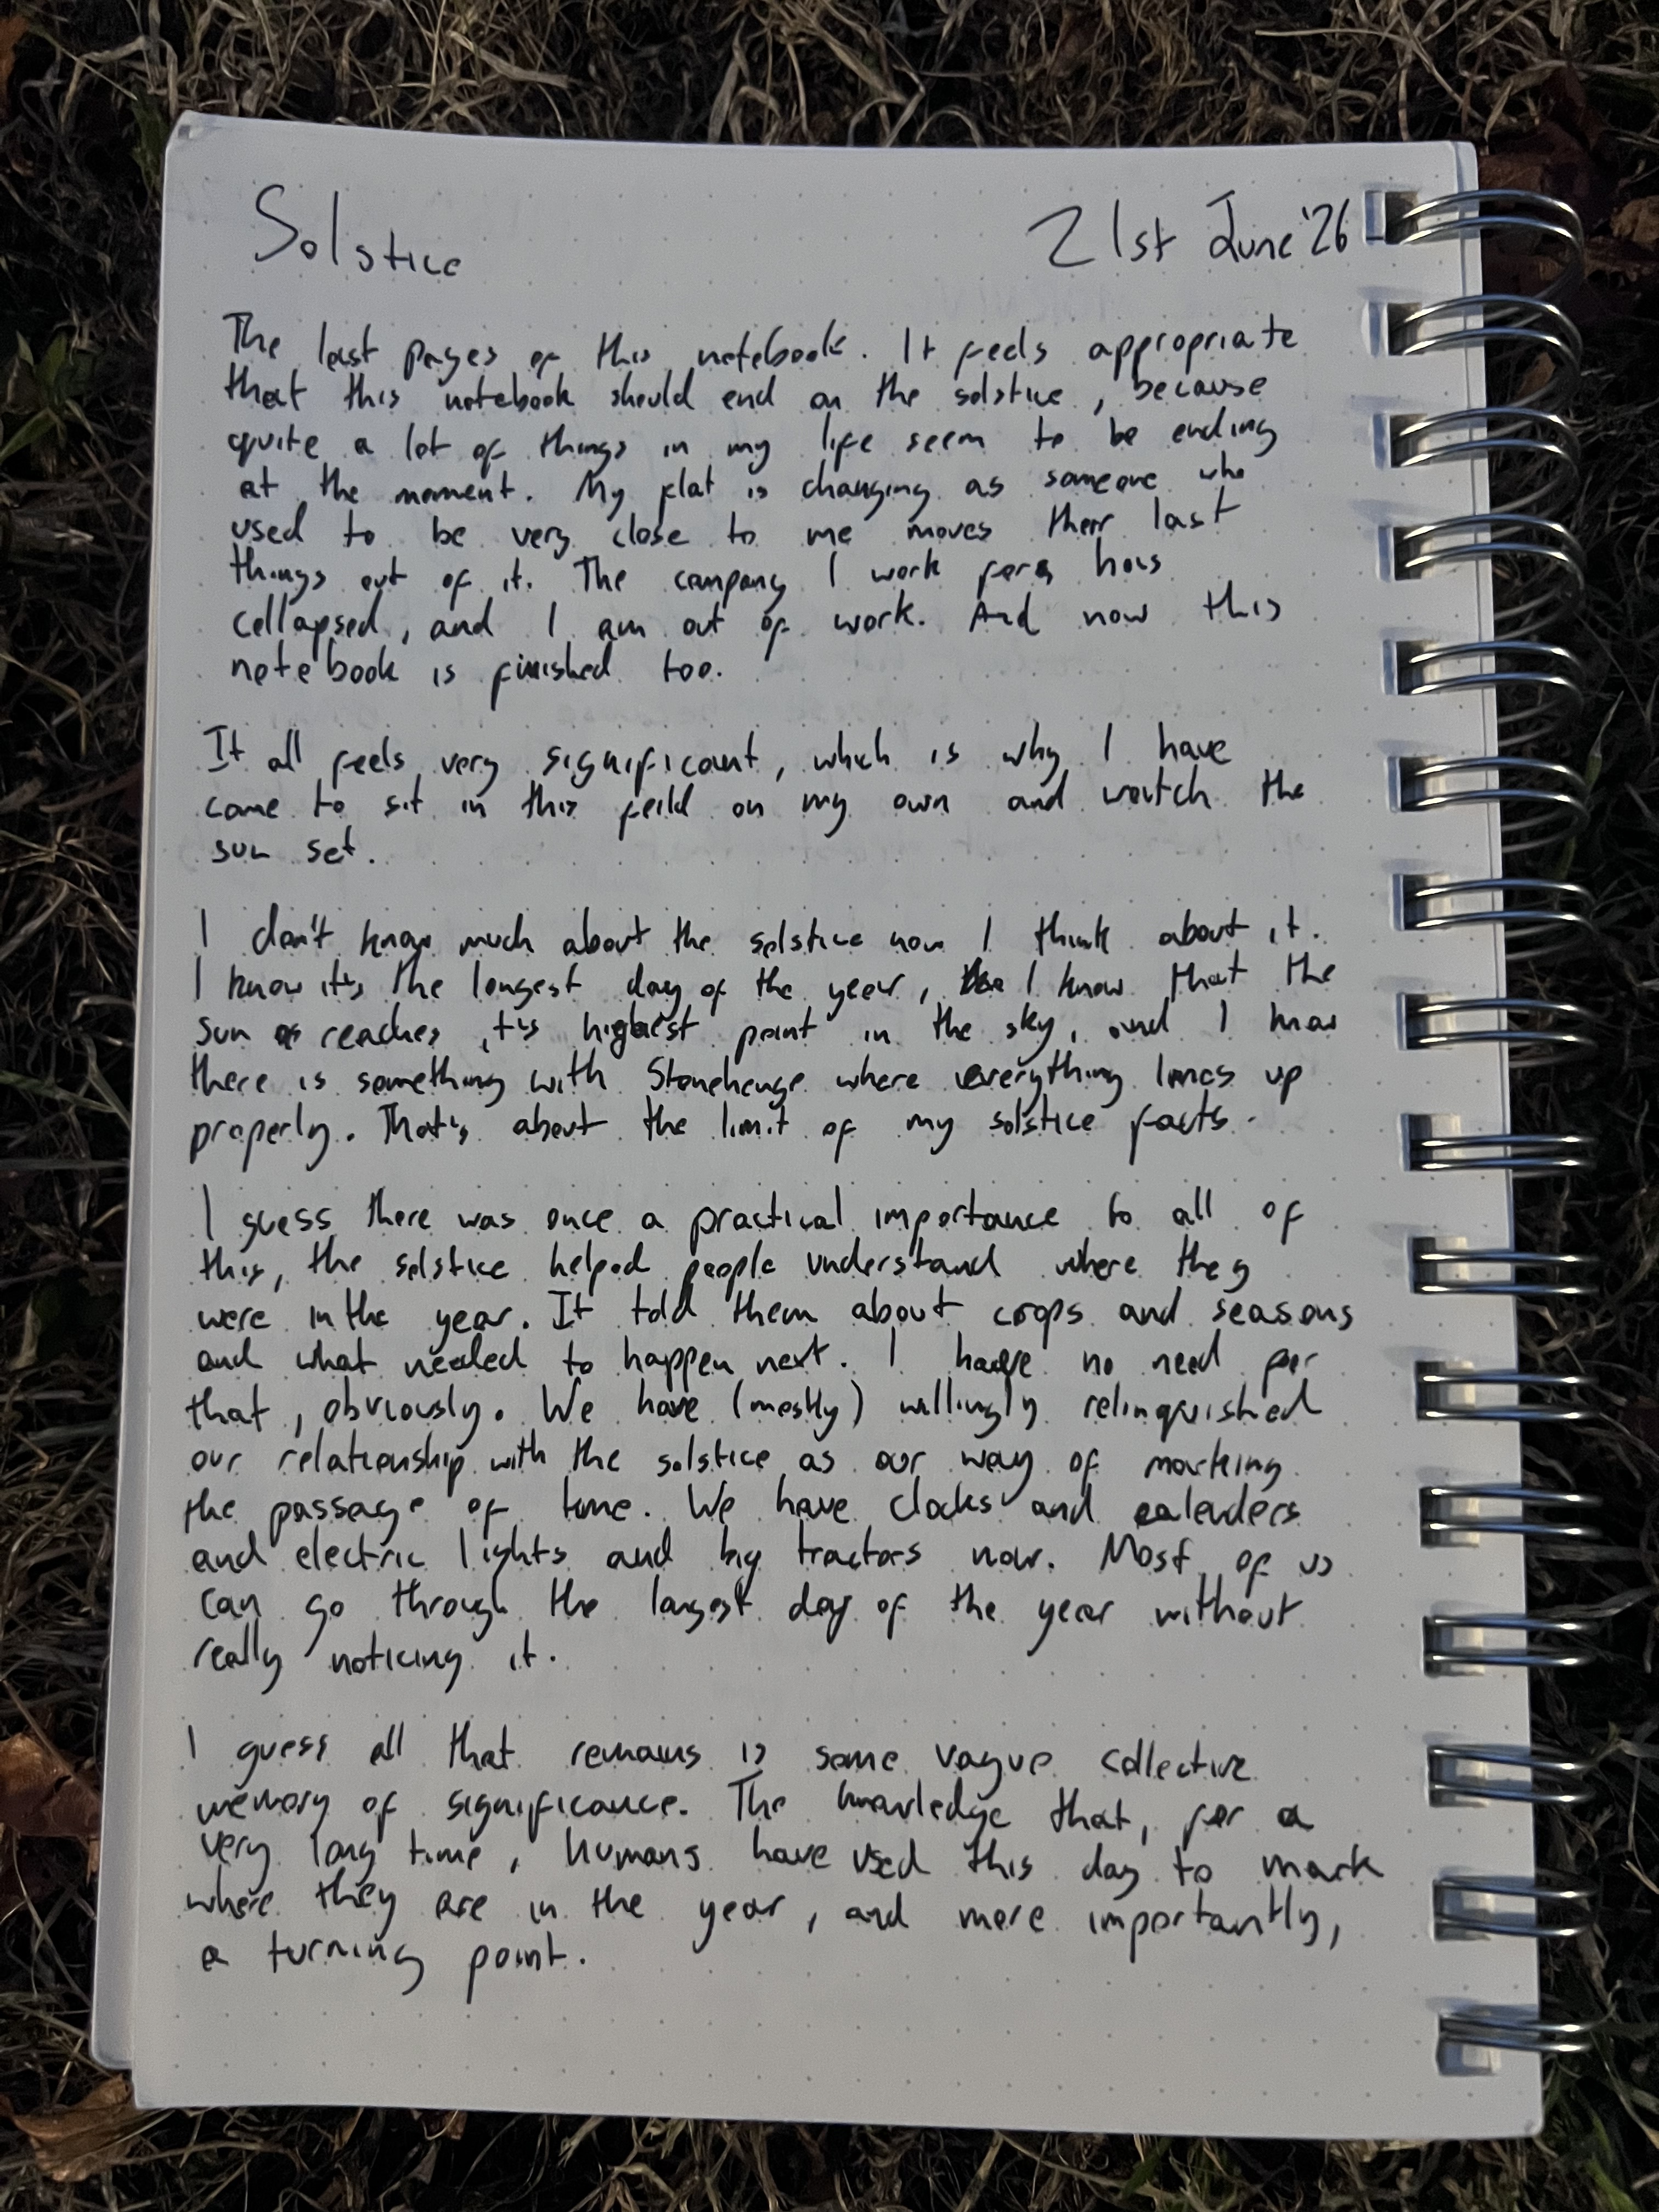 Solstice 21st June '26
The last pages of this notebook. It feels appropriate
that this notebook should end on the solstice, because
quite a lot of things in my life seem to be ending
at the moment. My flat is changing as someone who
used to be very close to me moves their last
things out of it. The company I work for has
collapsed, and I am out of work. And now this
notebook is finished too.
It all feels very significant, which is why I have
come to sit in this feild on my own and watch the
sun set.
I don't know much about the solstice now I think about it.
I know it's the longest day of the year, I know that the
sun reaches it's highest point in the sky, and I know
there is something with Stonehenge where everything lines up
properly. That's about the limit of my solstice facts.
I guess there was once a practical importance to all of
this, the solstice helped people understand where they
were in the year. It told them about crops and seasons
and what needed to happen next. I have no need for
that, obviously. We have (mostly) willingly relinquished
our relationship with the solstice as our way of marking
the passage of time. We have clocks and calenders
and electric lights and big tractors now. Most of us
can go through the longest day of the year without
really noticing it.
I guess all that remains is some vague collective
memory of significance. The knowledge that, for a
very long time, humans have used this day to mark
where they are in the year, and more importantly,
a turning point.